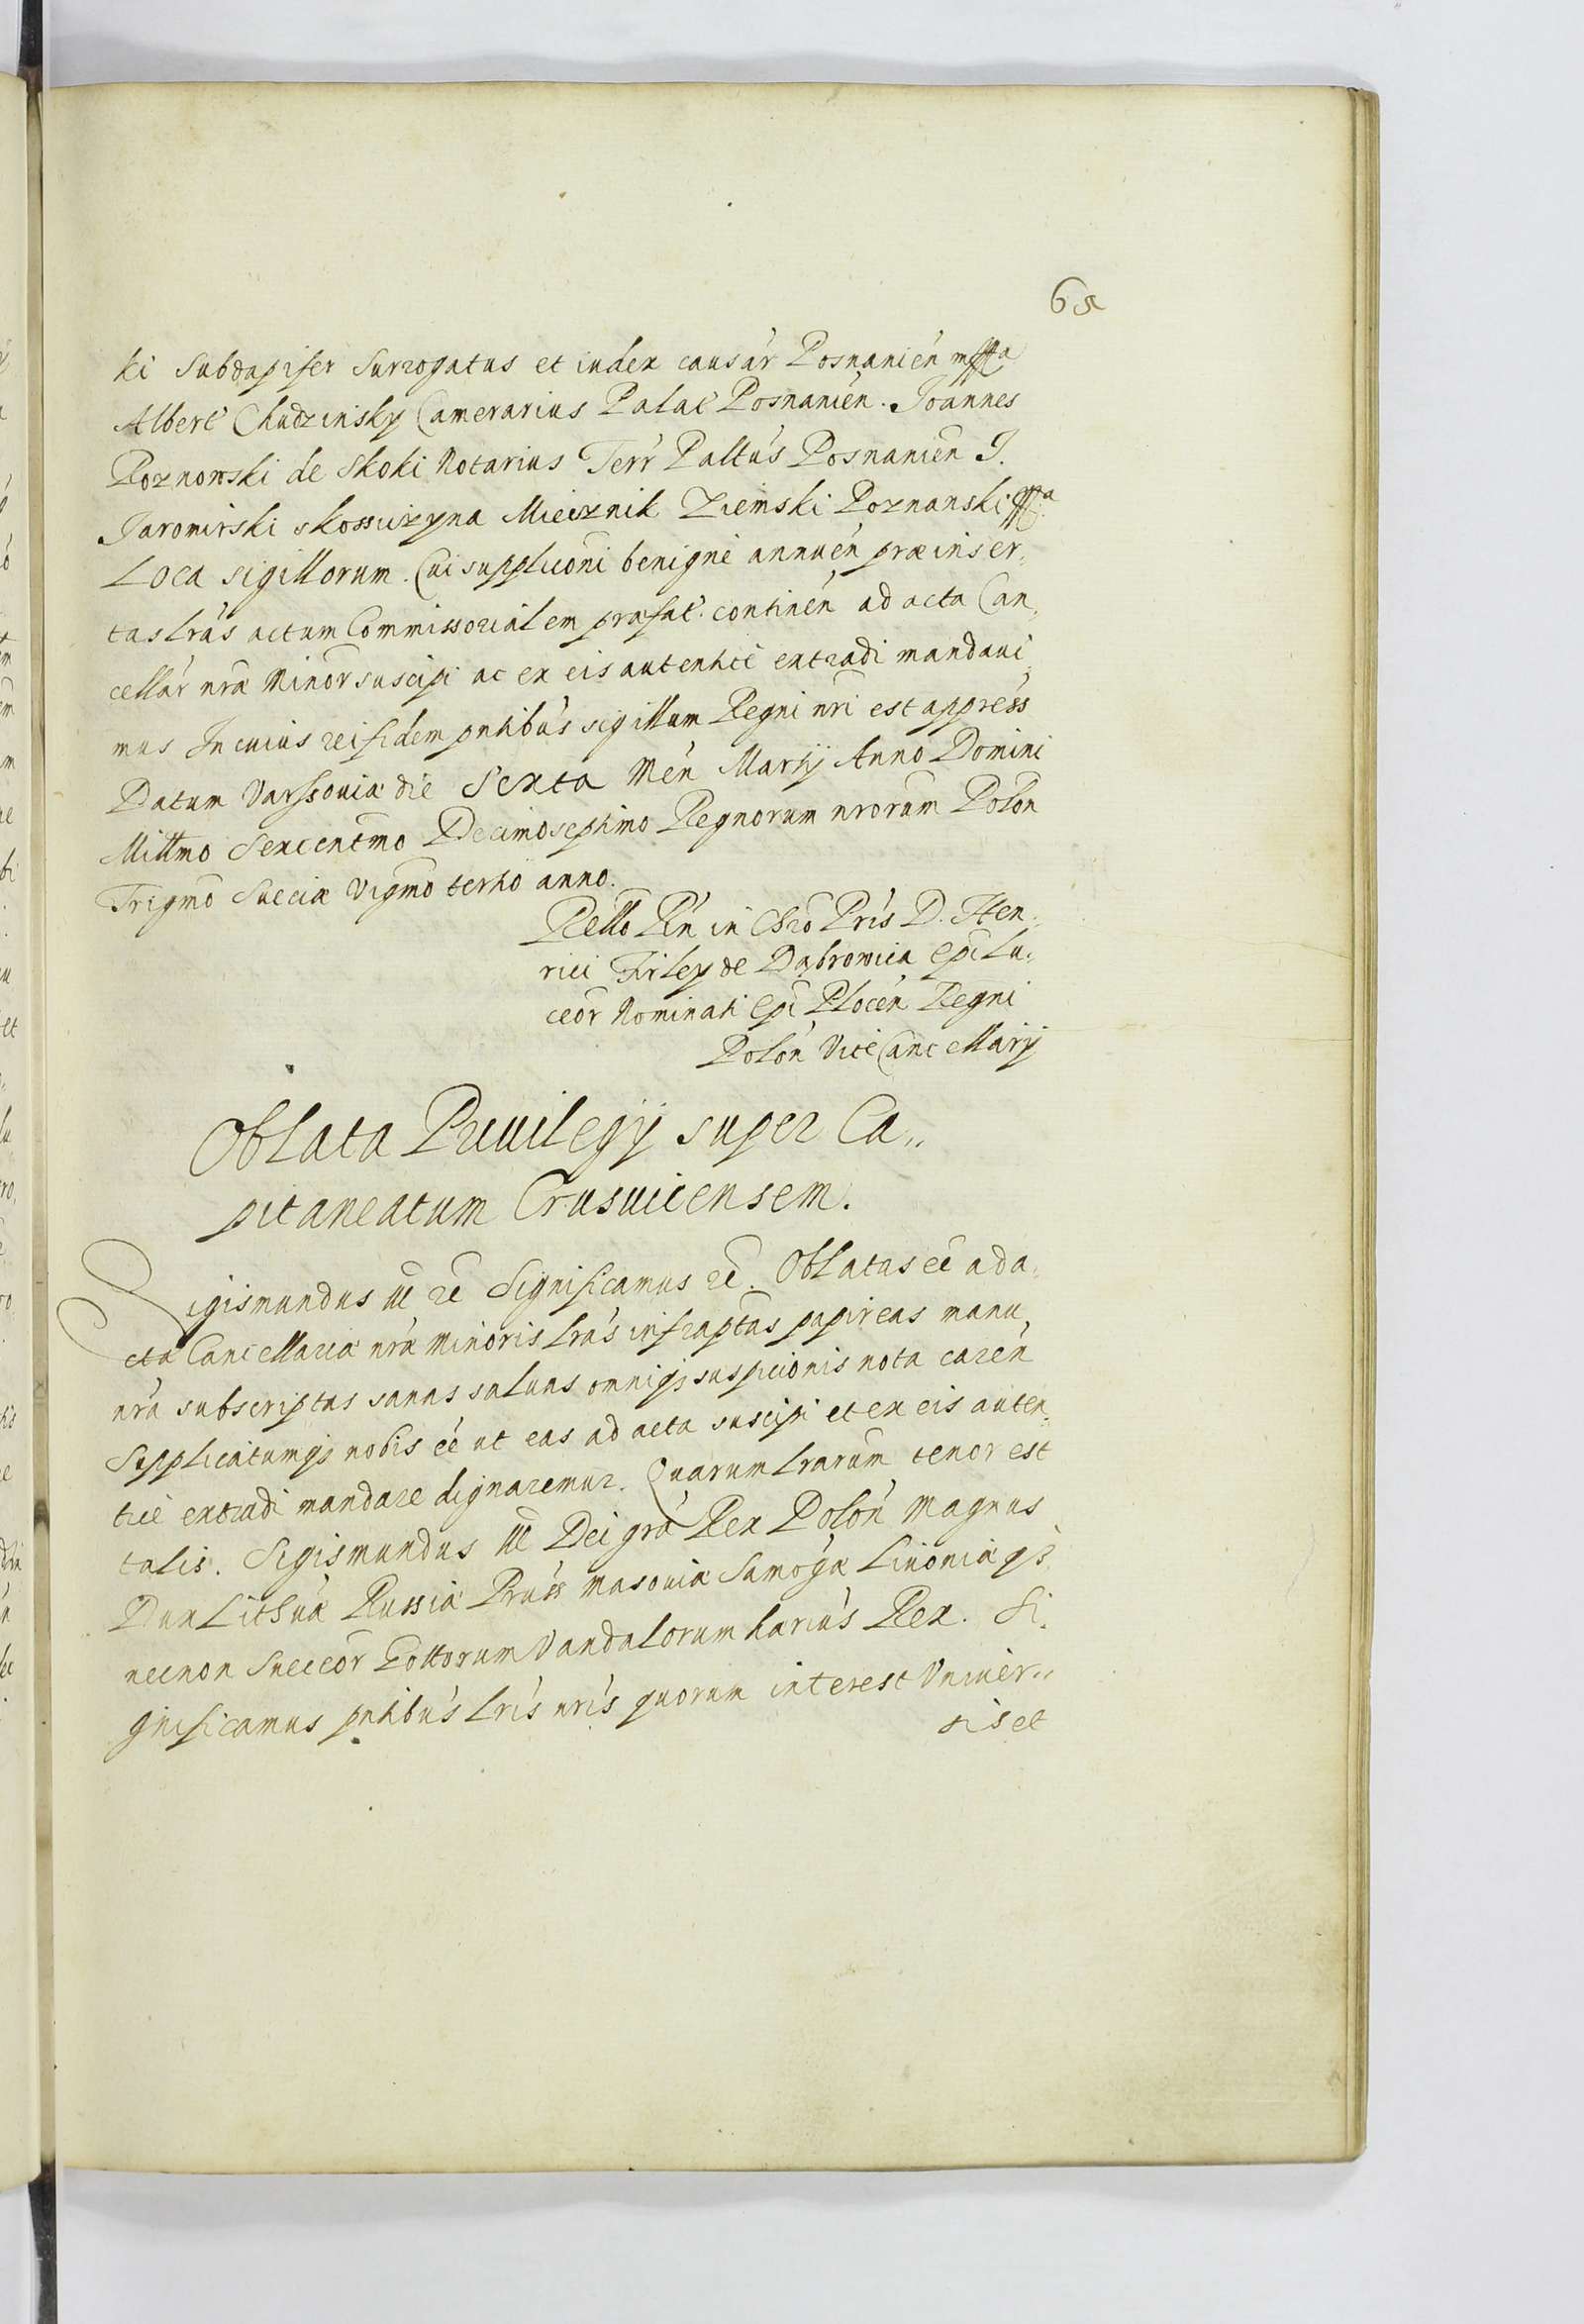 65
ki Subdapifer Surrogatus et iudex causar Posnanien mppa
Albert Chudzinsky Camerarius Palat Posnanien. Joannes
Roznowski de Skoki Notarius Terr Paltus Posnanien J.
Jaromirski skossiczyna Miecznik Ziemski Poznanski mppa
Loca sigillorum. Cui supplicõni benigne annuen præinser„
tas lras actum Commissorialem præfat. continen ad acta Can„
cellar nræ Minor suscipi ac ex eis autentice extradi mandaui„
mus In cuius rei fidem pntibus sigillum Regni nri est appress
Datum Varssouiæ die Sexta Men Martij Anno Domini
Millmo Sexcentmo Decimoseptimo Regnorum nrorum Polon
Trigmo Sueciæ Vigmo tertio anno.
Rello Rn in Chro Pris D. Hen„
rici Firley de Dąbrowica Epi Lu„
ceor Nominati Epi Plocen Regni
Polon ViceCancellarij
Oblata Priuilegij super Ca„
pitaneatum Crusuicensem.
Sigismundus III etc Significamus etc. Oblatas eê ad a„
cta Cancellariæ nræ Minoris lras infraptas papireas manu
nra subscriptas sanas saluas omniqz suspicionis nota caren
Supplicatumqz nobis eê ut eas ad acta suscipi et ex eis auten„
tice extradi mandare dignaremur. Quarum lrarum tenor est
talis. Sigismundus III Dei gra Rex Polon Magnus
Dux Lithuæ Russiæ Pruss Masouiæ Samogæ Liuoniæ qz
necnon Sueccor Gottorum Vandalorum hærius Rex. Si„
gnificamus pntibus lris nris quorum interest Vniuer„
sis et